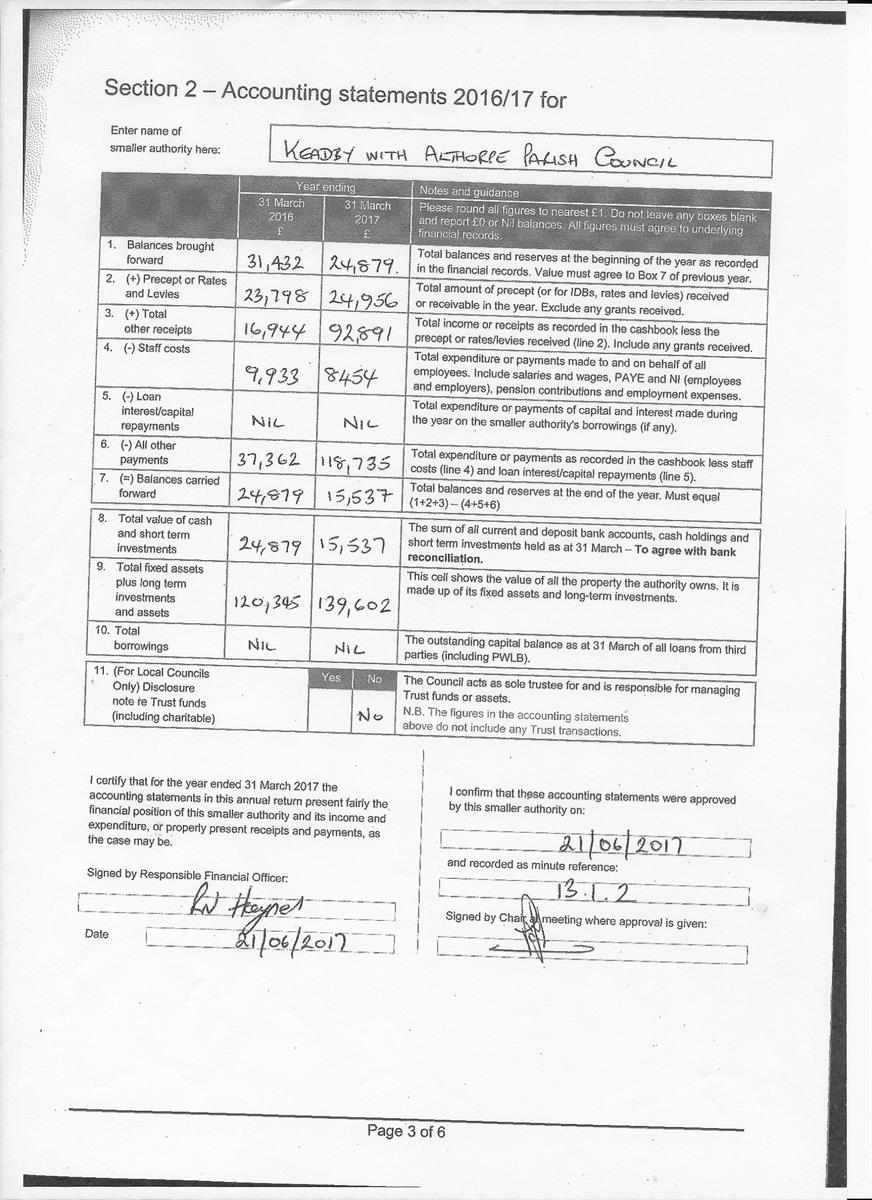 Section 2 – Accounting statements 2016/17 for
Enter name of
smaller authority here:
KEADBY WITH ALTHORPE PARISH COUNCIL
Year ending
Notes and guidance
31 March
2016
£
31 March
2017
£
Please round all figures to nearest £1. Do not leave any boxes blank
and report £0 or Nil balances. All figures must agree to underlying
financial records.
1. Balances brought
forward
31,432
24,879.
Total balances and reserves at the beginning of the year as recorded
in the financial records. Value must agree to Box 7 of previous year.
2. (+) Precept or Rates
and Levies
23,798
24,956
Total amount of precept (or for IDBs, rates and levies) received
or receivable in the year. Exclude any grants received.
3. (+) Total
other receipts
16,944
92,891
Total income or receipts as recorded in the cashbook less the
precept or rates/levies received (line 2). Include any grants received.
4. (-) Staff costs
9,933
8454
Total expenditure or payments made to and on behalf of all
employees. Include salaries and wages, PAYE and NI (employees
and employers), pension contributions and employment expenses.
5. (-) Loan
interest/capital
repayments
NIL
NIL
Total expenditure or payments of capital and interest made during
the year on the smaller authority's borrowings (if any).
6. (-) All other
payments
37,362
118,735
Total expenditure or payments as recorded in the cashbook less staff
costs (line 4) and loan interest/capital repayments (line 5).
7. (=) Balances carried
forward
24,879
15,537
Total balances and reserves at the end of the year. Must equal
(1+2+3) – (4+5+6)
8. Total value of cash
and short term
investments
24,879
15,537
The sum of all current and deposit bank accounts, cash holdings and
short term investments held as at 31 March – To agree with bank
reconciliation.
9. Total fixed assets
plus long term
investments
and assets
120,345
139,602
This cell shows the value of all the property the authority owns. It is
made up of its fixed assets and long-term investments.
10. Total
borrowings
NIL
NIL
The outstanding capital balance as at 31 March of all loans from third
parties (including PWLB).
11. (For Local Councils
Only) Disclosure
note re Trust funds
(including charitable)
Yes
No
No
The Council acts as sole trustee for and is responsible for managing
Trust funds or assets.
N.B. The figures in the accounting statements
above do not include any Trust transactions.
I certify that for the year ended 31 March 2017 the
accounting statements in this annual return present fairly the
financial position of this smaller authority and its income and
expenditure, or properly present receipts and payments, as
the case may be.
Signed by Responsible Financial Officer:
Date
21/06/2017
I confirm that these accounting statements were approved
by this smaller authority on:
21/06/2017
and recorded as minute reference:
13.1.2
Signed by Chair at meeting where approval is given:
Page 3 of 6